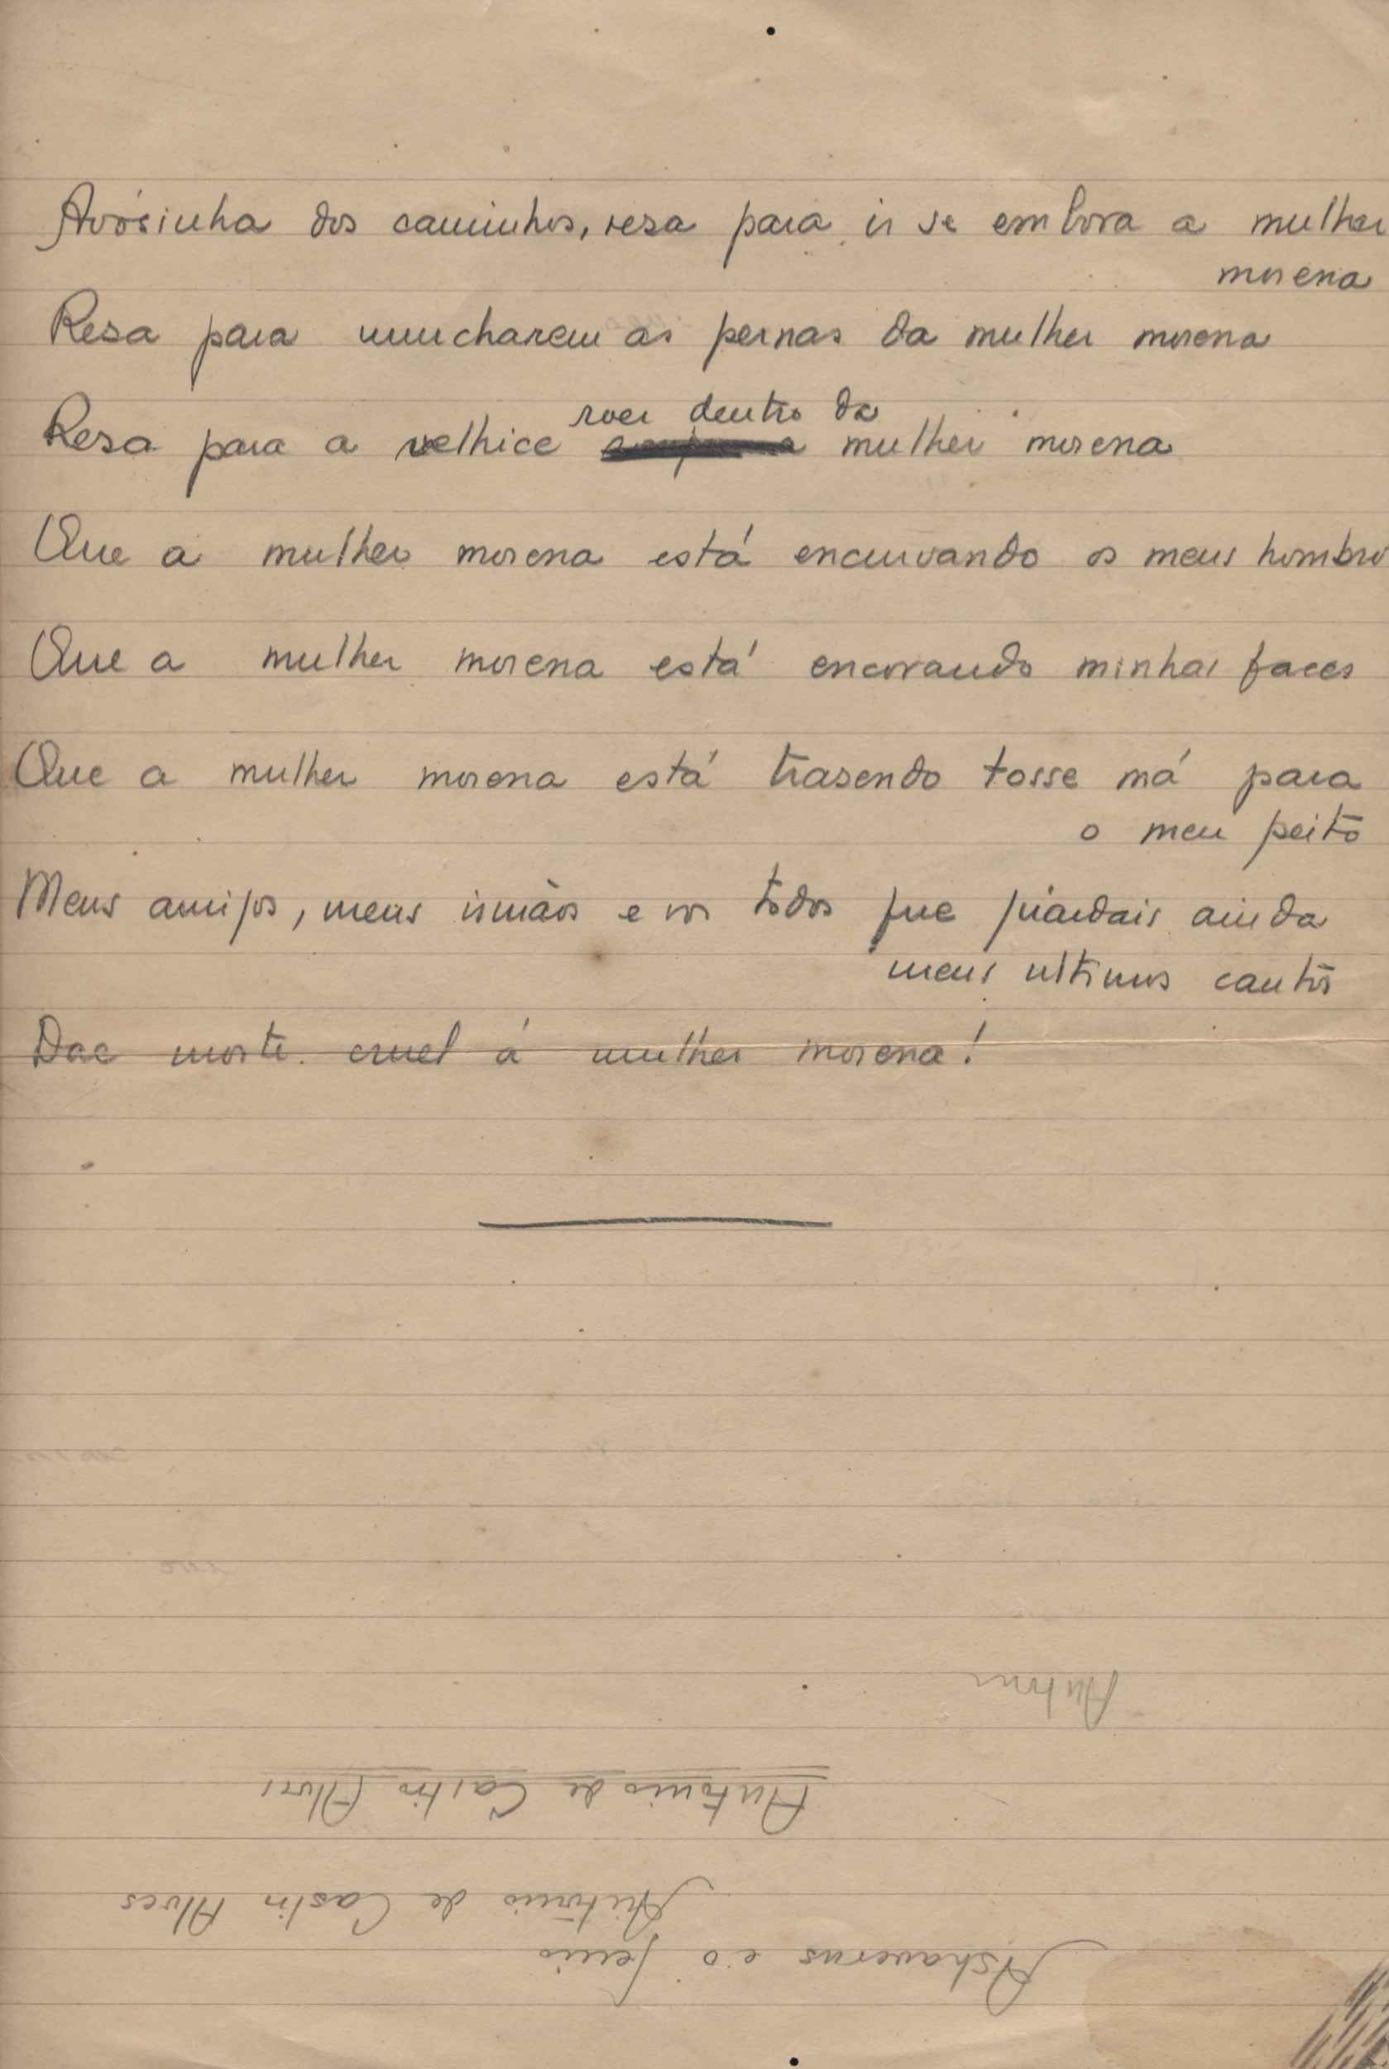 Avósinha dos caminhos, resa para ir se embora a mulher
morena
Resa para murcharem as pernas da mulher morena
roer dentro da
Resa para a velhice mulher morena
Que a mulher morena está encurvando os meus hombro
Que a mulher morena está encovando minhas faces
Que a mulher morena está trasendo tosse má para
o meu peito
Meus amigos, meus irmãos e vos todos que guardais ainda
meus ultimos cantos
Dae morte cruel á mulher morena!
Antoni
Antonio de Castro Alves
Antônio de Castro Alves
Ashaverus e o genio